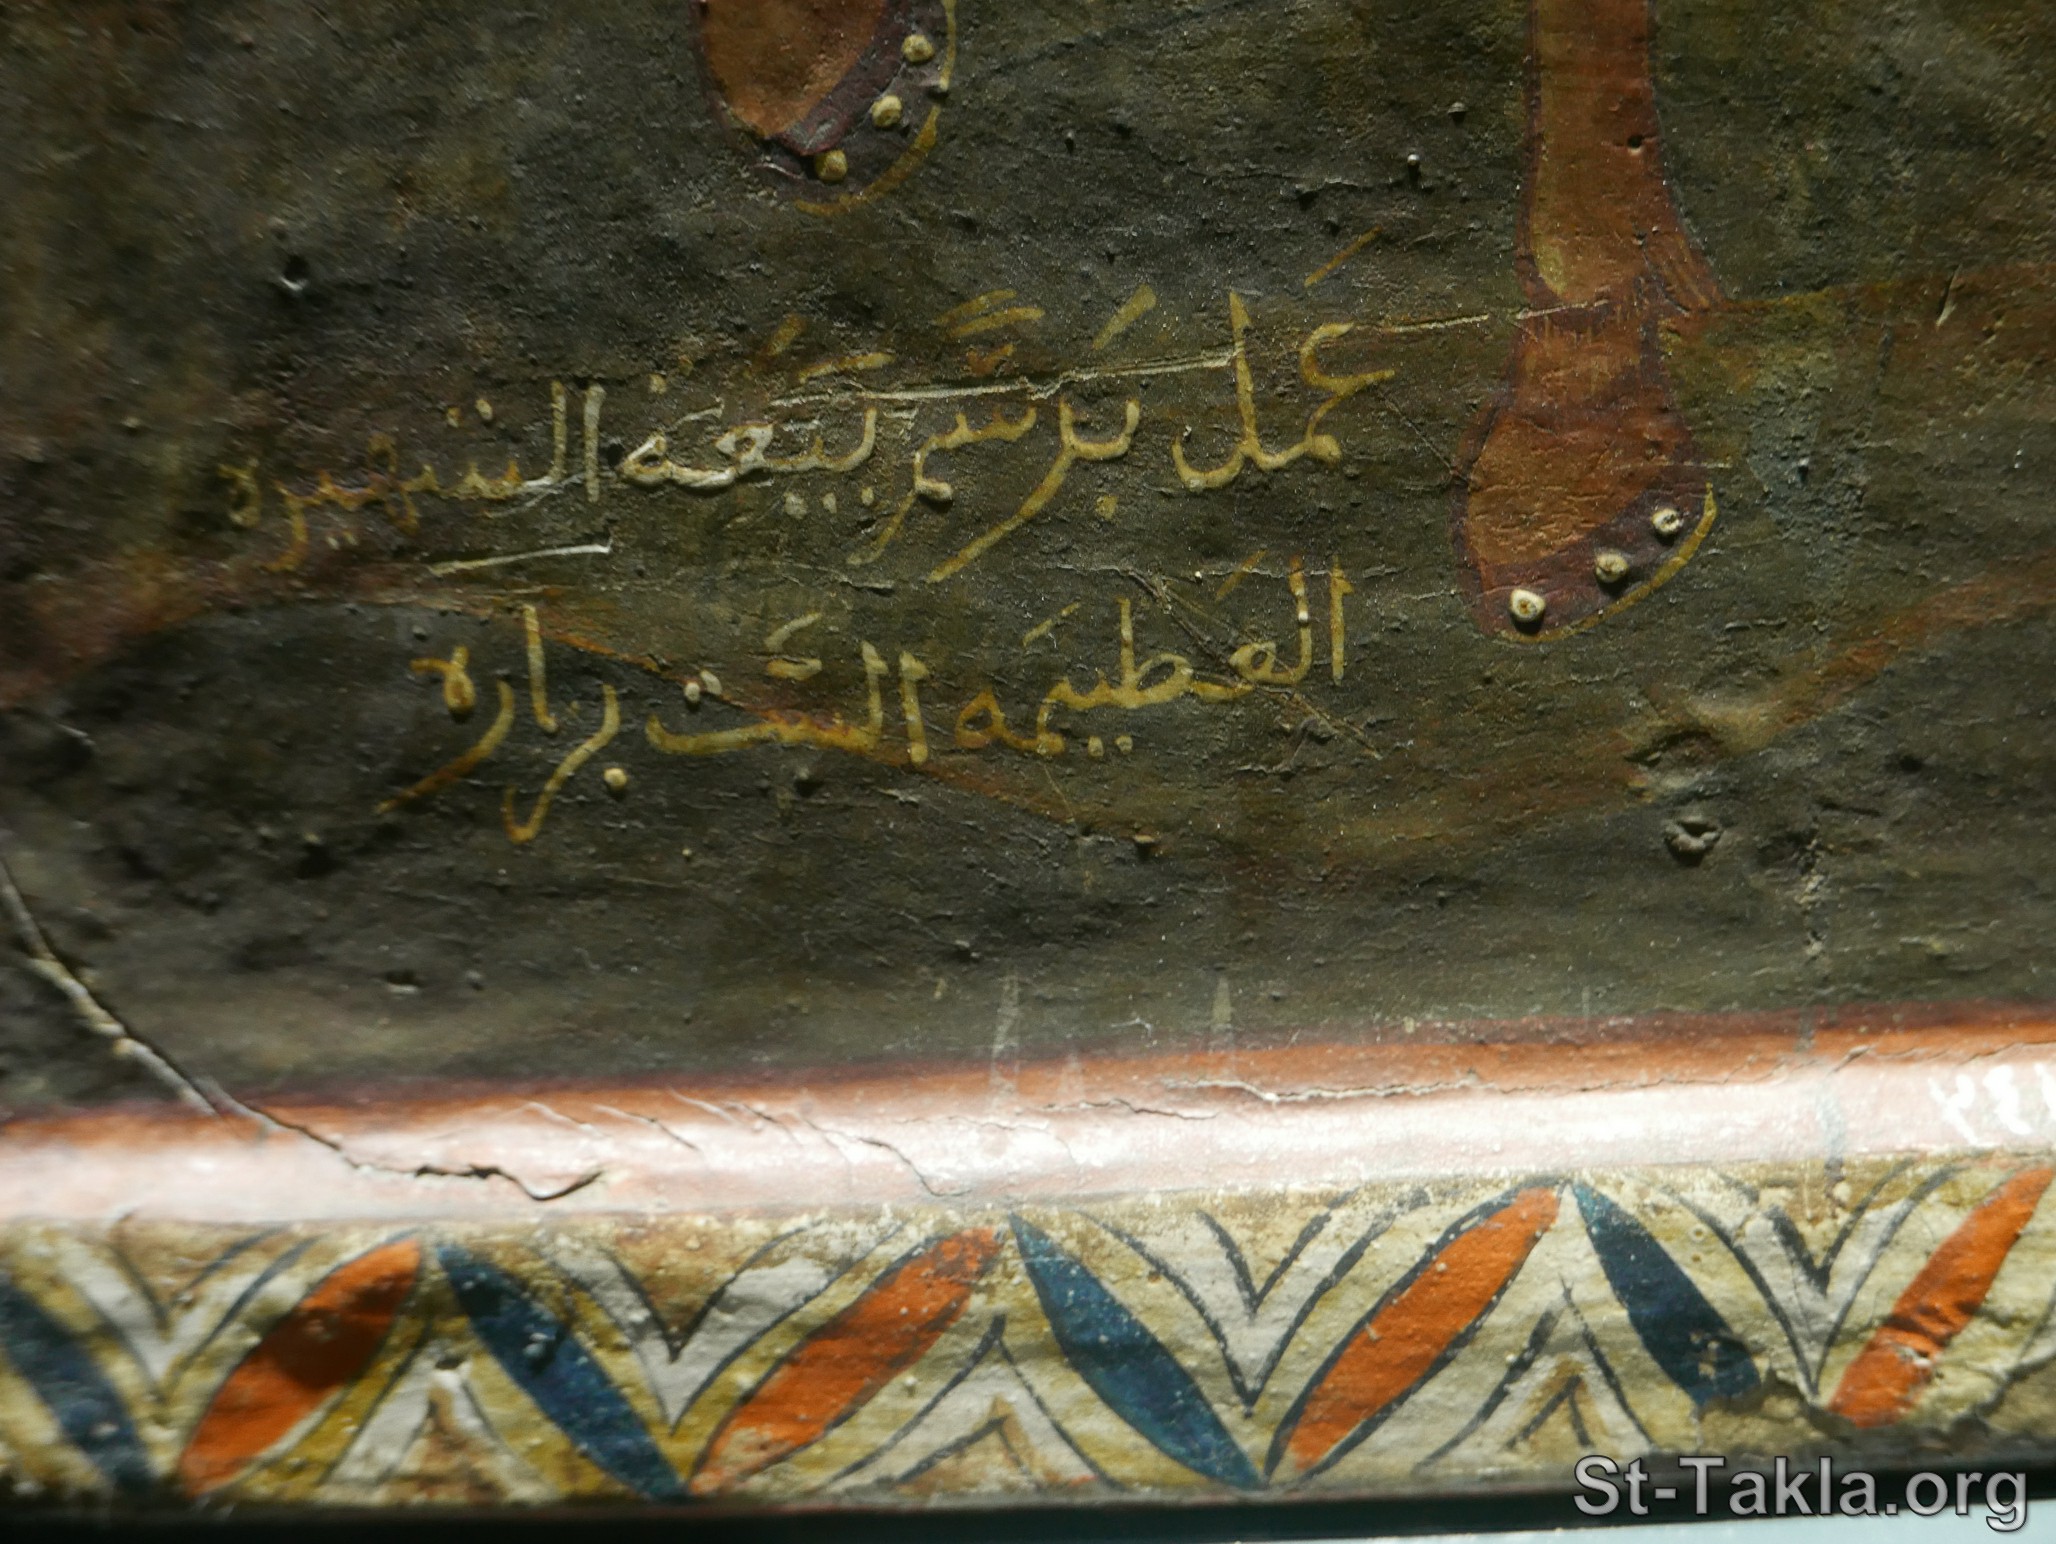 عَمَل بَرسْمِ بَيَعَة الشهيره
العَظيمَه السَت برباره
٢٤٤
St-Takla.org